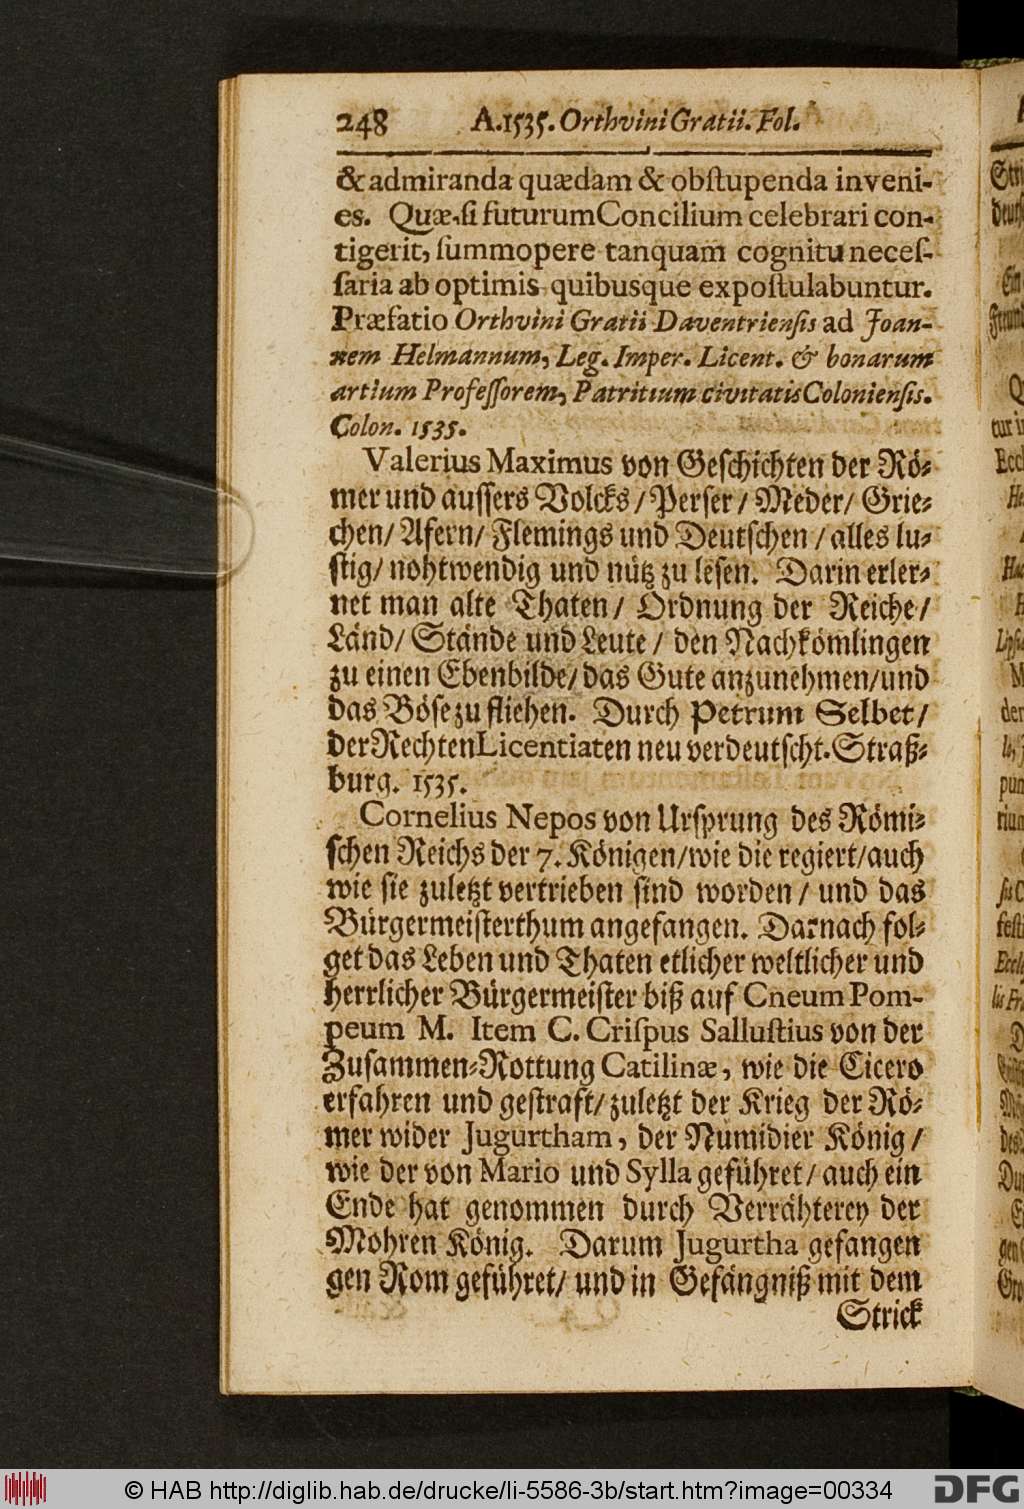 248 A. 1535. Orthvini Gratii. Fol.
& admiranda quædam & obſtupenda inveni-
es. Quæ, ſi futurum Concilium celebrari con-
tigerit, ſummopere tanquam cognitu neceſ-
ſaria ab optimis quibusque expoſtulabuntur.
Præfatio Orthvini Gratii Daventrienſis ad Joan-
nem Helmannum, Leg. Imper. Licent. & bonarum
artium Profeſſorem, Patritium civitatis Colonienſis.
Colon. 1535.
Valerius Maximus von Geſchichten der Rö-
mer und auſſers Volcks / Perſer / Meder / Grie-
chen / Afern / Flemings und Deutſchen / alles lu-
ſtig / nohtwendig und nütz zu leſen. Darin erler-
net man alte Thaten / Ordnung der Reiche /
Länd / Stände und Leute / den Nachkömlingen
zu einen Ebenbilde / das Gute anzunehmen / und
das Böſe zu fliehen. Durch Petrum Selbet /
der Rechten Licentiaten neu verdeutſcht. Straß-
burg. 1535.
Cornelius Nepos von Urſprung des Römi-
ſchen Reichs der 7. Königen / wie die regiert / auch
wie ſie zuletzt vertrieben ſind worden / und das
Bürgermeiſterthum angefangen. Darnach fol-
get das Leben und Thaten etlicher weltlicher und
herrlicher Bürgermeiſter biß auf Cneum Pom-
peum M. Item C. Criſpus Salluſtius von der
Zuſammen-Rottung Catilinæ, wie die Cicero
erfahren und geſtraft / zuletzt der Krieg der Rö-
mer wider Jugurtham, der Numidier König /
wie der von Mario und Sylla geführet / auch ein
Ende hat genommen durch Verrähterey der
Mohren König. Darum Jugurtha gefangen
gen Rom geführet / und in Gefängniß mit dem
Strick
© HAB http://diglib.hab.de/drucke/li-5586-3b/start.htm?image=00334
DFG